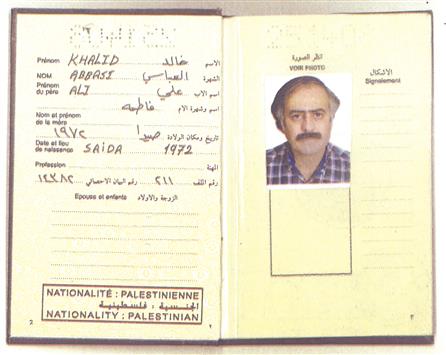 Prénom KHALID خالد الاسم
NOM ABBASI العباسي الشهرة
Prénom du père ALI علي اسم الاب
فاطمه اسم وشهرة الام
Nom et prénom de la mère
١٩٧٢ صيدا تاريخ ومكان الولادة
Date et lieu de naissance SAIDA 1972
Profession المهنة
١٤٣٨٢ رقم البيان الاحصائي ٢١١ رقم الملف
Epouse et enfants الزوجة والاولاد
NATIONALITÉ : PALESTINIENNE
الجنسية : فلسطينية
NATIONALITY : PALESTINIAN
2 ٢
انظر الصورة
VOIR PHOTO
الاشكال
Signalement
٣